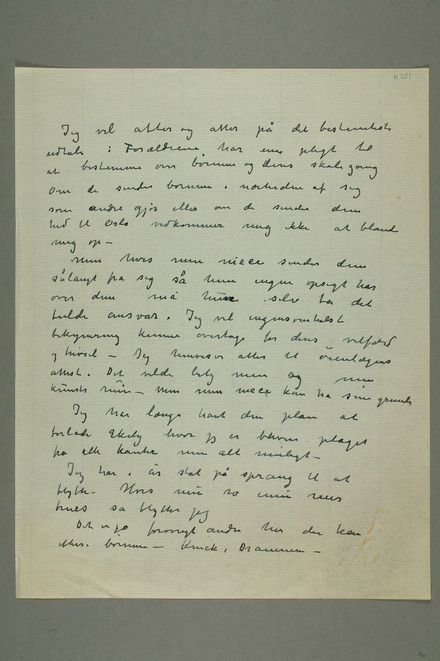 Jeg vil atter og atter på det bestemteste
udtale: Forældrene har ene pligt til
at bestemme over børnene og deres skolegang
Om de sender børnene i nærheden af sig
som andre gjør eller om de sender dem
hed til Oslo vedkommer mig ikke at blande
mig op –
men hvis min niece sender dem
sålangt fra sig så hun ingen opsigt har
over dem må hun selv ta det
fulde ansvar. Jeg vil ingensomhelst
bekymring kunne overtage for deres velfærd
og trivsel – Jeg henviser atter til øienlægens
attest. Det vilde
min – men min niece kan ha sine grunde
Jeg har længe havt den plan at
forlade Ekely hvor jeg er bleven plaget
fra alle kanter men alt muligt –
Jeg har i år stat på sprang til at
flytte – Hvis min ro
trues så flytter jeg
Det er jo forøvrigt andre her der kan
børnene – i Drammen –